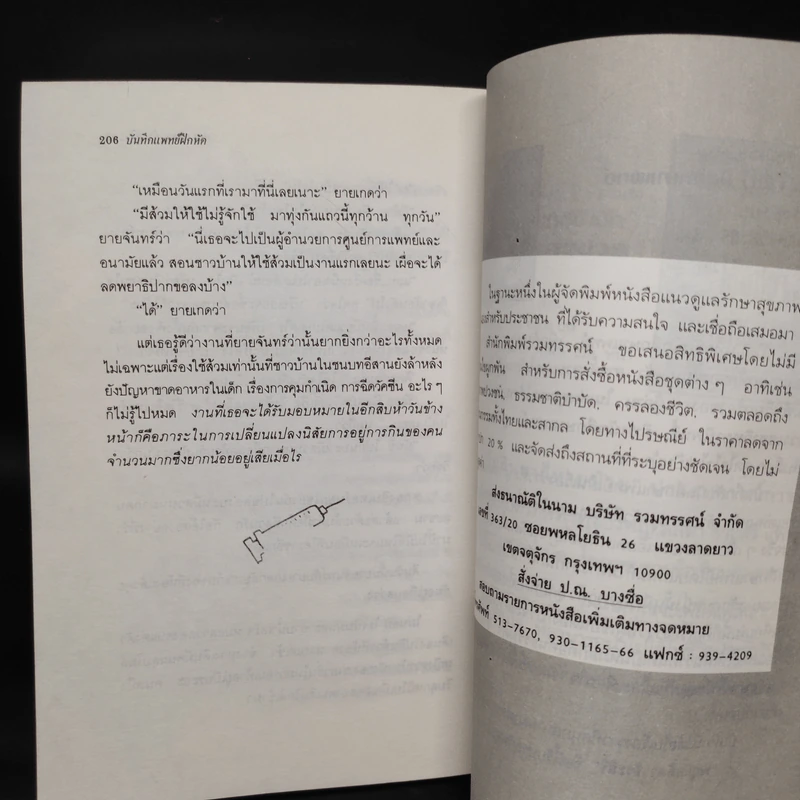 206 บันทึกแพทย์ฝึกหัด
“เหมือนวันแรกที่เรามาที่นี่เลยเนาะ” ยายเกดว่า
“มีส้วมให้ใช้ไม่รู้จักใช้ มาทุ่งกันแถวนี้ทุกว้าน ทุกวัน”
ยายจันทร์ว่า “นี่เธอจะไปเป็นผู้อำนวยการศูนย์การแพทย์และ
อนามัยแล้ว สอนชาวบ้านให้ใช้ส้วมเป็นงานแรกเลยนะ เผื่อจะได้
ลดพยาธิปากขอลงบ้าง”
“ได้” ยายเกดว่า
แต่เธอรู้ดีว่างานที่ยายจันทร์ว่านั้นยากยิ่งกว่าอะไรทั้งหมด
ไม่เฉพาะแต่เรื่องใช้ส้วมเท่านั้นที่ชาวบ้านในชนบทอีสานยังล้าหลัง
ยังปัญหาขาดอาหารในเด็ก เรื่องการคุมกำเนิด การฉีดวัคซีน อะไร ๆ
ก็ไม่รู้ไปหมด งานที่เธอจะได้รับมอบหมายในอีกสิบห้าวันข้าง
หน้าก็คือภาระในการเปลี่ยนแปลงนิสัยการอยู่การกินของคน
จำนวนมากซึ่งยากน้อยอยู่เสียเมื่อไร
ในฐานะหนึ่งในผู้จัดพิมพ์หนังสือแนวดูแลรักษาสุขภาพ
สำหรับประชาชน ที่ได้รับความสนใจ และเชื่อถือเสมอมา
สำนักพิมพ์รวมทรรศน์ ขอเสนอสิทธิพิเศษโดยไม่มี
ผูกพัน สำหรับการสั่งซื้อหนังสือชุดต่าง ๆ อาทิเช่น
ธรรมชาติบำบัด, ครรลองชีวิต, รวมตลอดถึง
ทั้งไทยและสากล โดยทางไปรษณีย์ ในราคาลดจาก
20 % และจัดส่งถึงสถานที่ที่ระบุอย่างชัดเจน โดยไม่
ส่งธนาณัติในนาม บริษัท รวมทรรศน์ จำกัด
เลขที่ 363/20 ซอยพหลโยธิน 26 แขวงลาดยาว
เขตจตุจักร กรุงเทพฯ 10900
สั่งจ่าย ป.ณ. บางซื่อ
สอบถามรายการหนังสือเพิ่มเติมทางจดหมาย
513-7670, 930-1165-66 แฟกซ์ : 939-4209